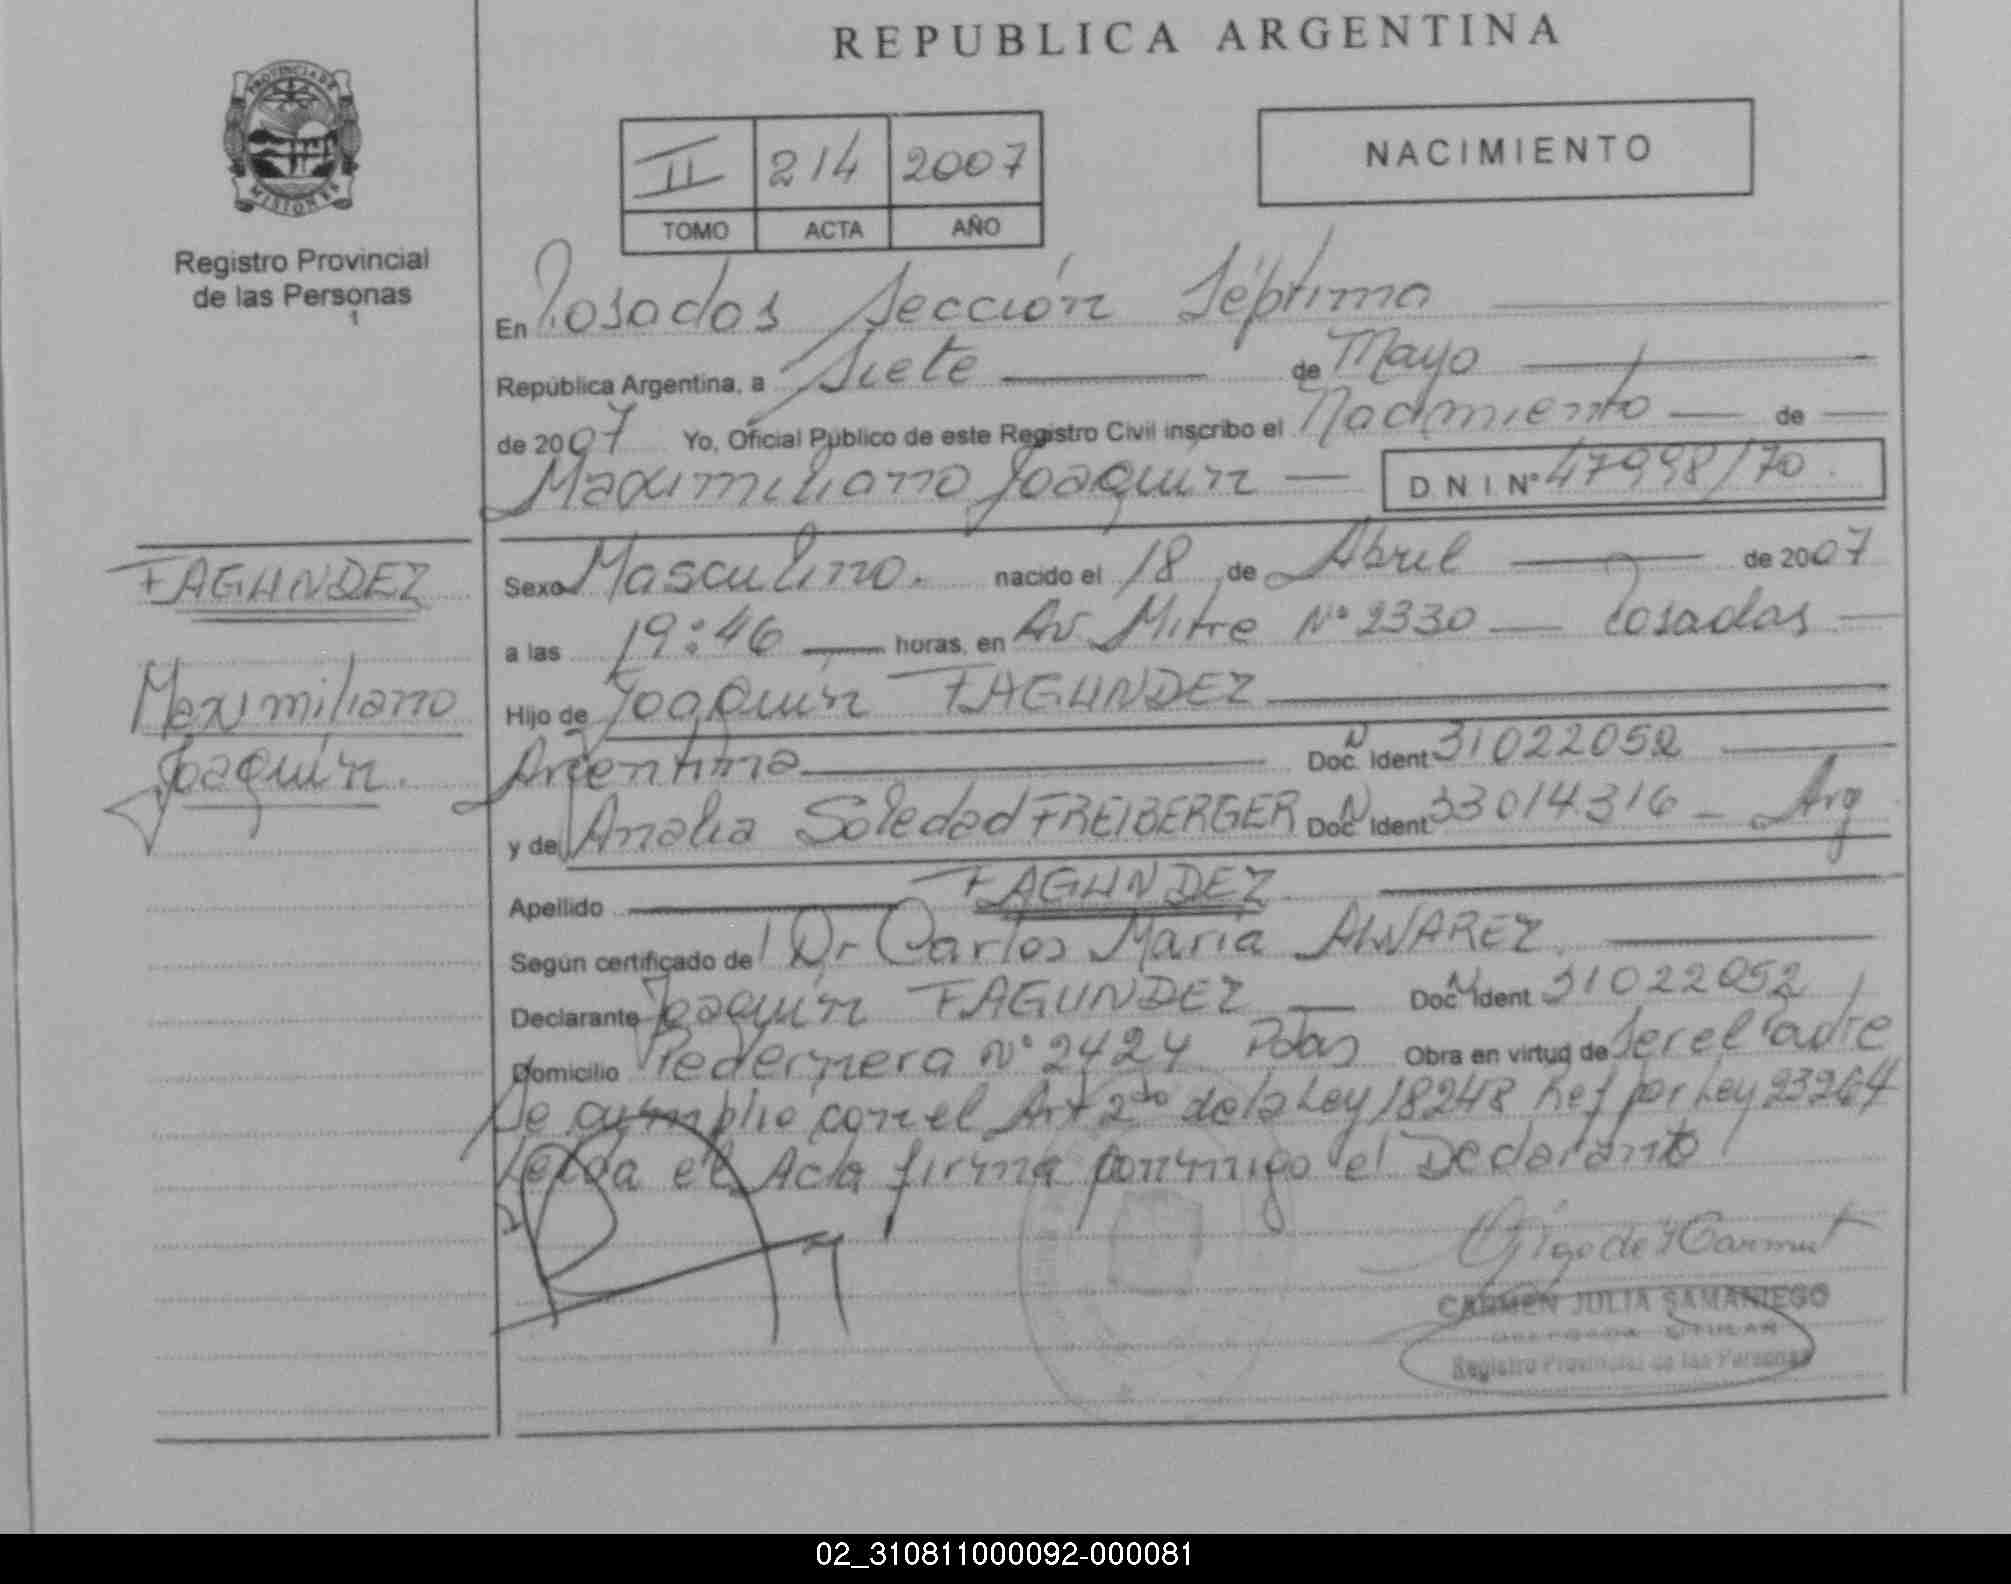 REPUBLICA ARGENTINA
PROVINCIA DE
MISIONES
Registro Provincial
de las Personas
1
II 214 2007
TOMO ACTA AÑO
NACIMIENTO
En Posadas Sección Séptima
República Argentina, a Siete de Mayo
de 2007 Yo, Oficial Público de este Registro Civil inscribo el Nacimiento de
Maximiliano Joaquín DNI Nº 47998170
FAGUNDEZ
Maximiliano
Joaquín.
Sexo Masculino. nacido el 18 de Abril de 2007
a las 19:46 horas, en Av Mitre Nº 2330 Posadas
Hijo de Joaquín FAGUNDEZ
Argentina Doc. Ident N 31022052
y de Analia Soledad FREIBERGER Doc. Ident N 33014316 - Arg
Apellido FAGUNDEZ
Según certificado de Dr Carlos María ALVAREZ
Declarante Joaquín FAGUNDEZ Doc. Ident N 31022052
Domicilio Pedernera Nº 2424 Pdas Obra en virtud de Ser el Padre
Se cumplio con el Art 2do de la Ley 18248 Ref por Ley 23264
Leida el Acta firma conmigo el Declarante
CARMEN JULIA SAMANIEGO
DELEGADA TITULAR
Registro Provincial de las Personas
02_310811000092-000081